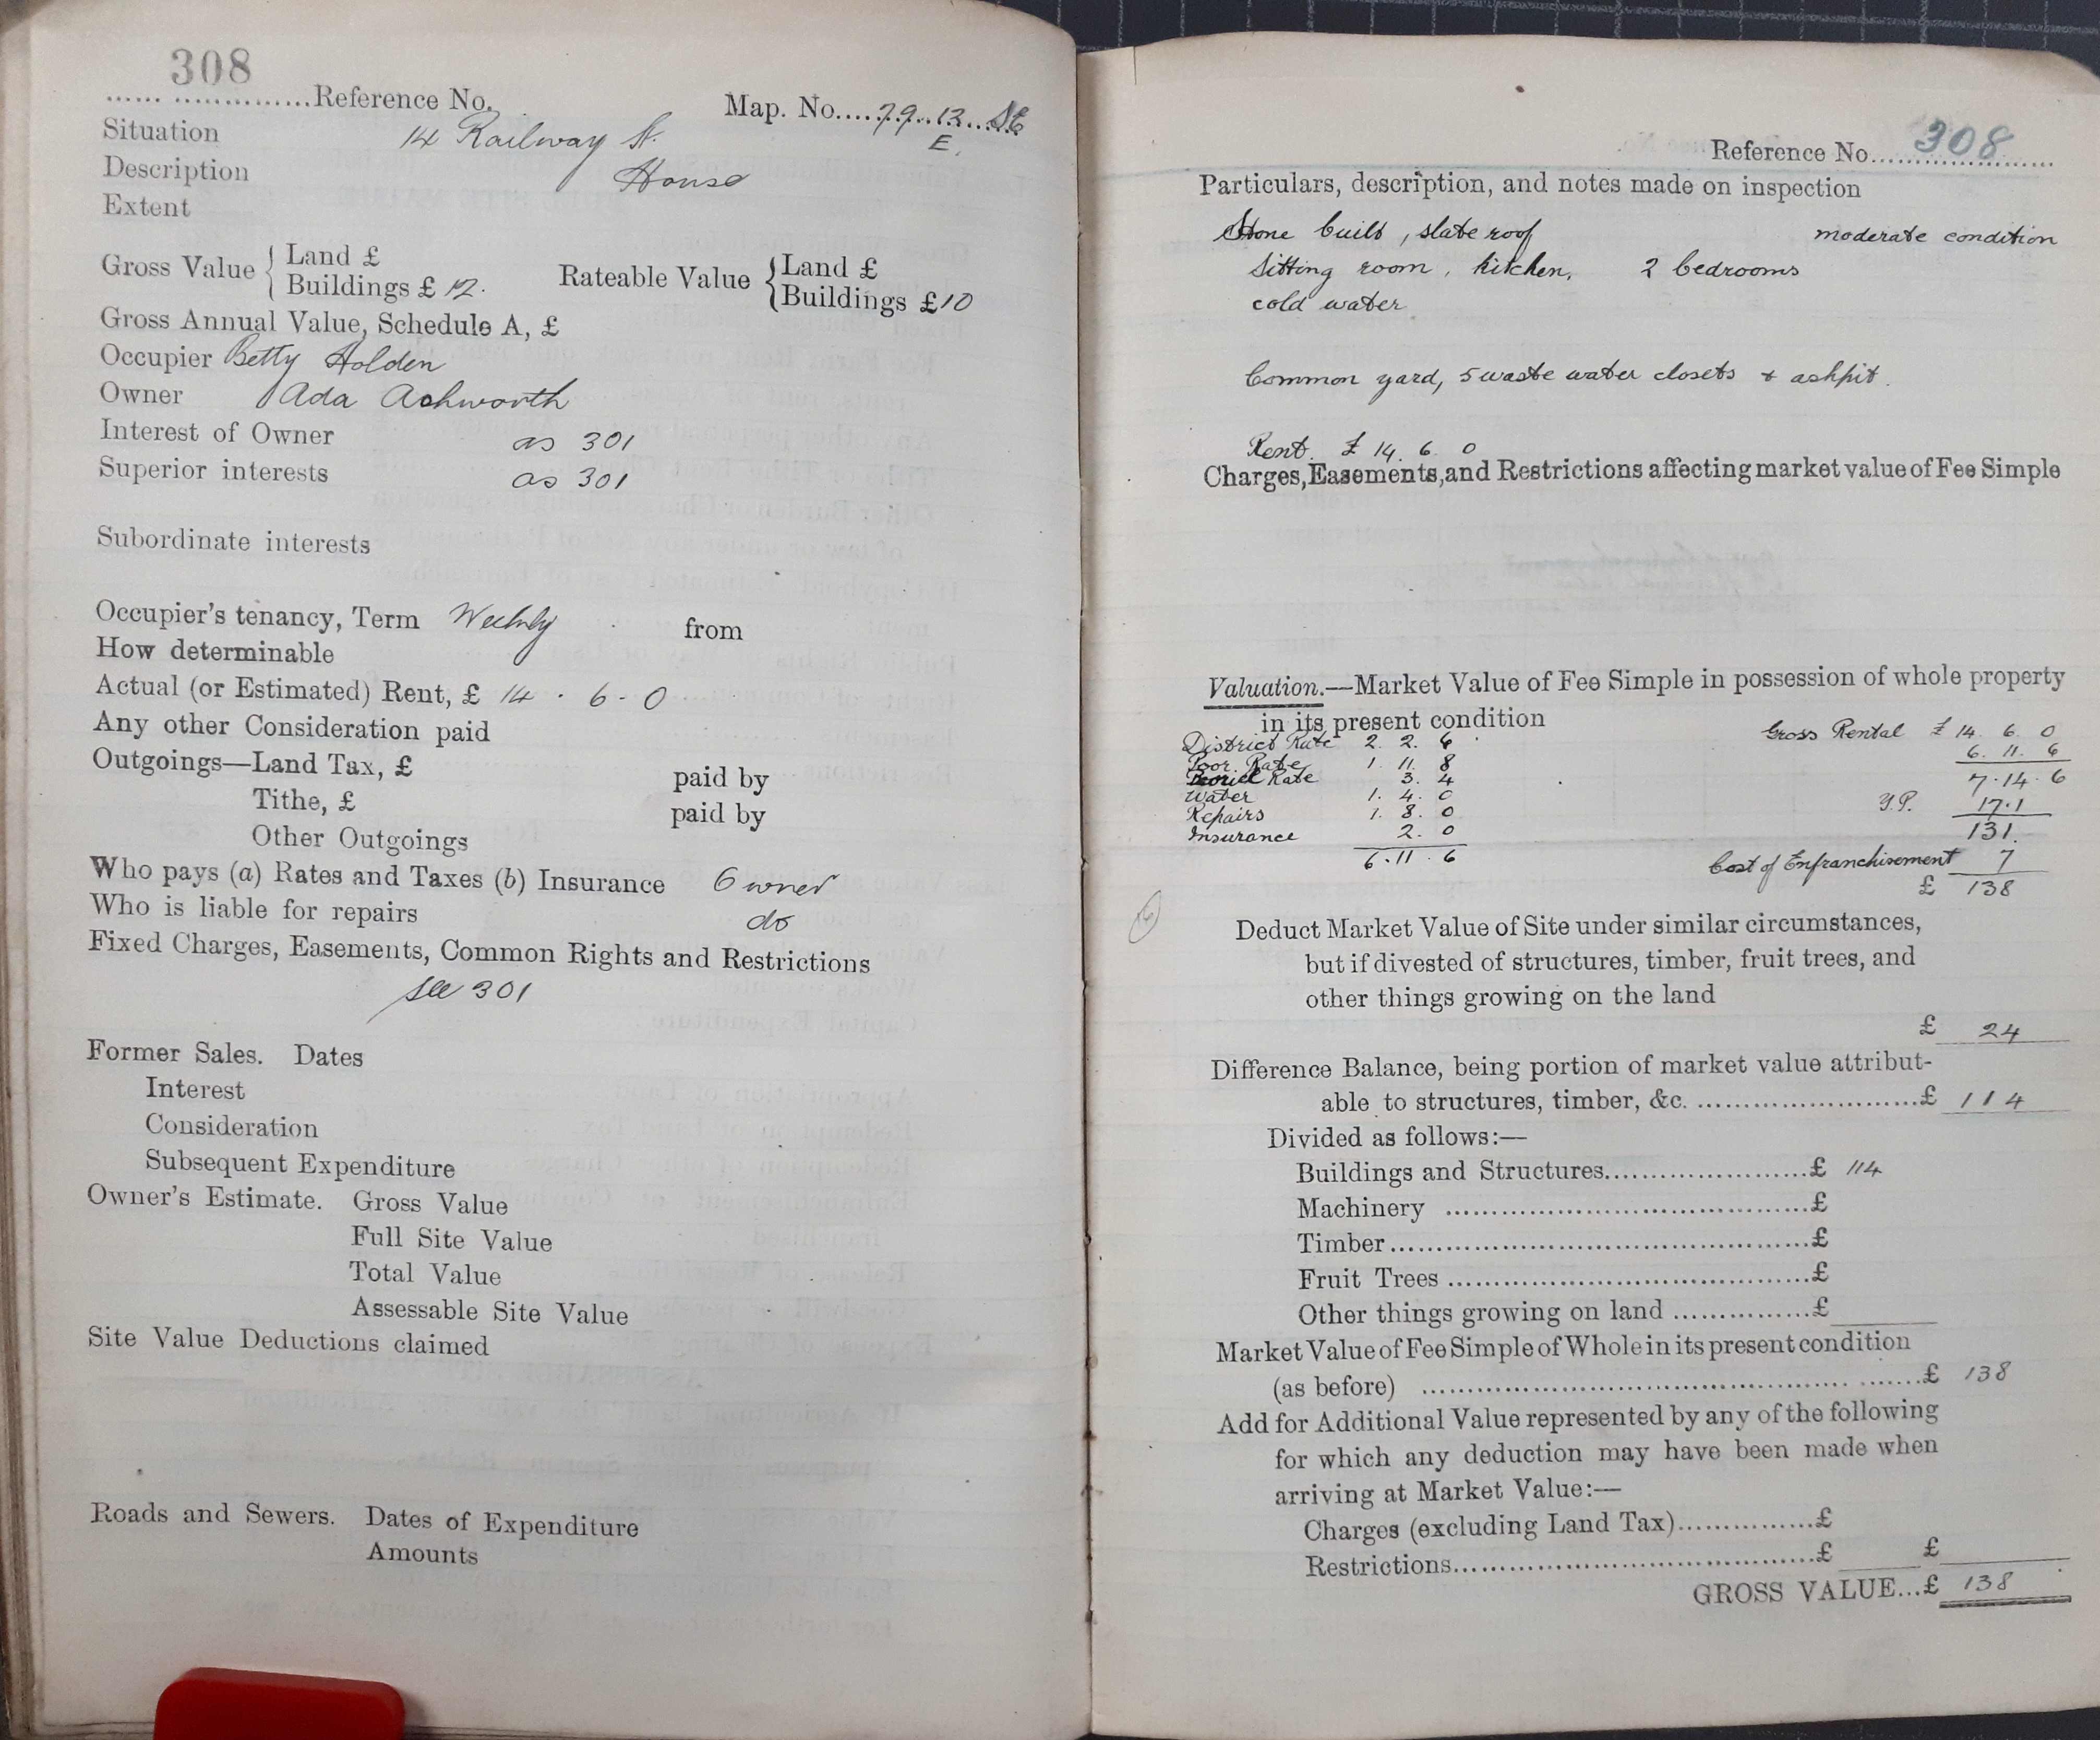 308
Reference No.
Map. No. 79.13
E.
Situation 14 Railway St.
Description House
Extent
Gross Value { Land £
Buildings £ 12.
Rateable Value { Land £
Buildings £10
Gross Annual Value, Schedule A, £
Occupier Betty Holden
Owner Ada Ashworth
Interest of Owner as 301
Superior interests as 301
Subordinate interests
Occupier's tenancy, Term Weekly from
How determinable
Actual (or Estimated) Rent, £ 14 . 6 - 0
Any other Consideration paid
Outgoings—Land Tax, £ paid by
Tithe, £ paid by
Other Outgoings
Who pays (a) Rates and Taxes (b) Insurance Owner
Who is liable for repairs do
Fixed Charges, Easements, Common Rights and Restrictions
see 301
Former Sales. Dates
Interest
Consideration
Subsequent Expenditure
Owner's Estimate. Gross Value
Full Site Value
Total Value
Assessable Site Value
Site Value Deductions claimed
Roads and Sewers. Dates of Expenditure
Amounts
Reference No. 308
Particulars, description, and notes made on inspection
Stone built, slate roof moderate condition
Sitting room, kitchen, 2 bedrooms
cold water
Common yard, 5 waste water closets + ashpit.
Rent. £ 14. 6. 0
Charges, Easements, and Restrictions affecting market value of Fee Simple
Valuation.—Market Value of Fee Simple in possession of whole property
in its present condition
District Rate 2. 2. 6
Poor Rate 1. 11. 8
Rate 3. 4
Water 1. 4. 0
Repairs 1. 8. 0
Insurance 2. 0
6. 11. 6
Gross Rental £ 14. 6. 0
6. 11. 6
7. 14. 6
Y.P. 17.1
131.
Cost of Enfranchisement 7
£ 138
Deduct Market Value of Site under similar circumstances,
but if divested of structures, timber, fruit trees, and
other things growing on the land
£ 24
Difference Balance, being portion of market value attribut-
able to structures, timber, &c. £ 114
Divided as follows:—
Buildings and Structures £ 114
Machinery £
Timber £
Fruit Trees £
Other things growing on land £
Market Value of Fee Simple of Whole in its present condition
(as before) £ 138
Add for Additional Value represented by any of the following
for which any deduction may have been made when
arriving at Market Value:—
Charges (excluding Land Tax) £
Restrictions £ £
GROSS VALUE...£ 138